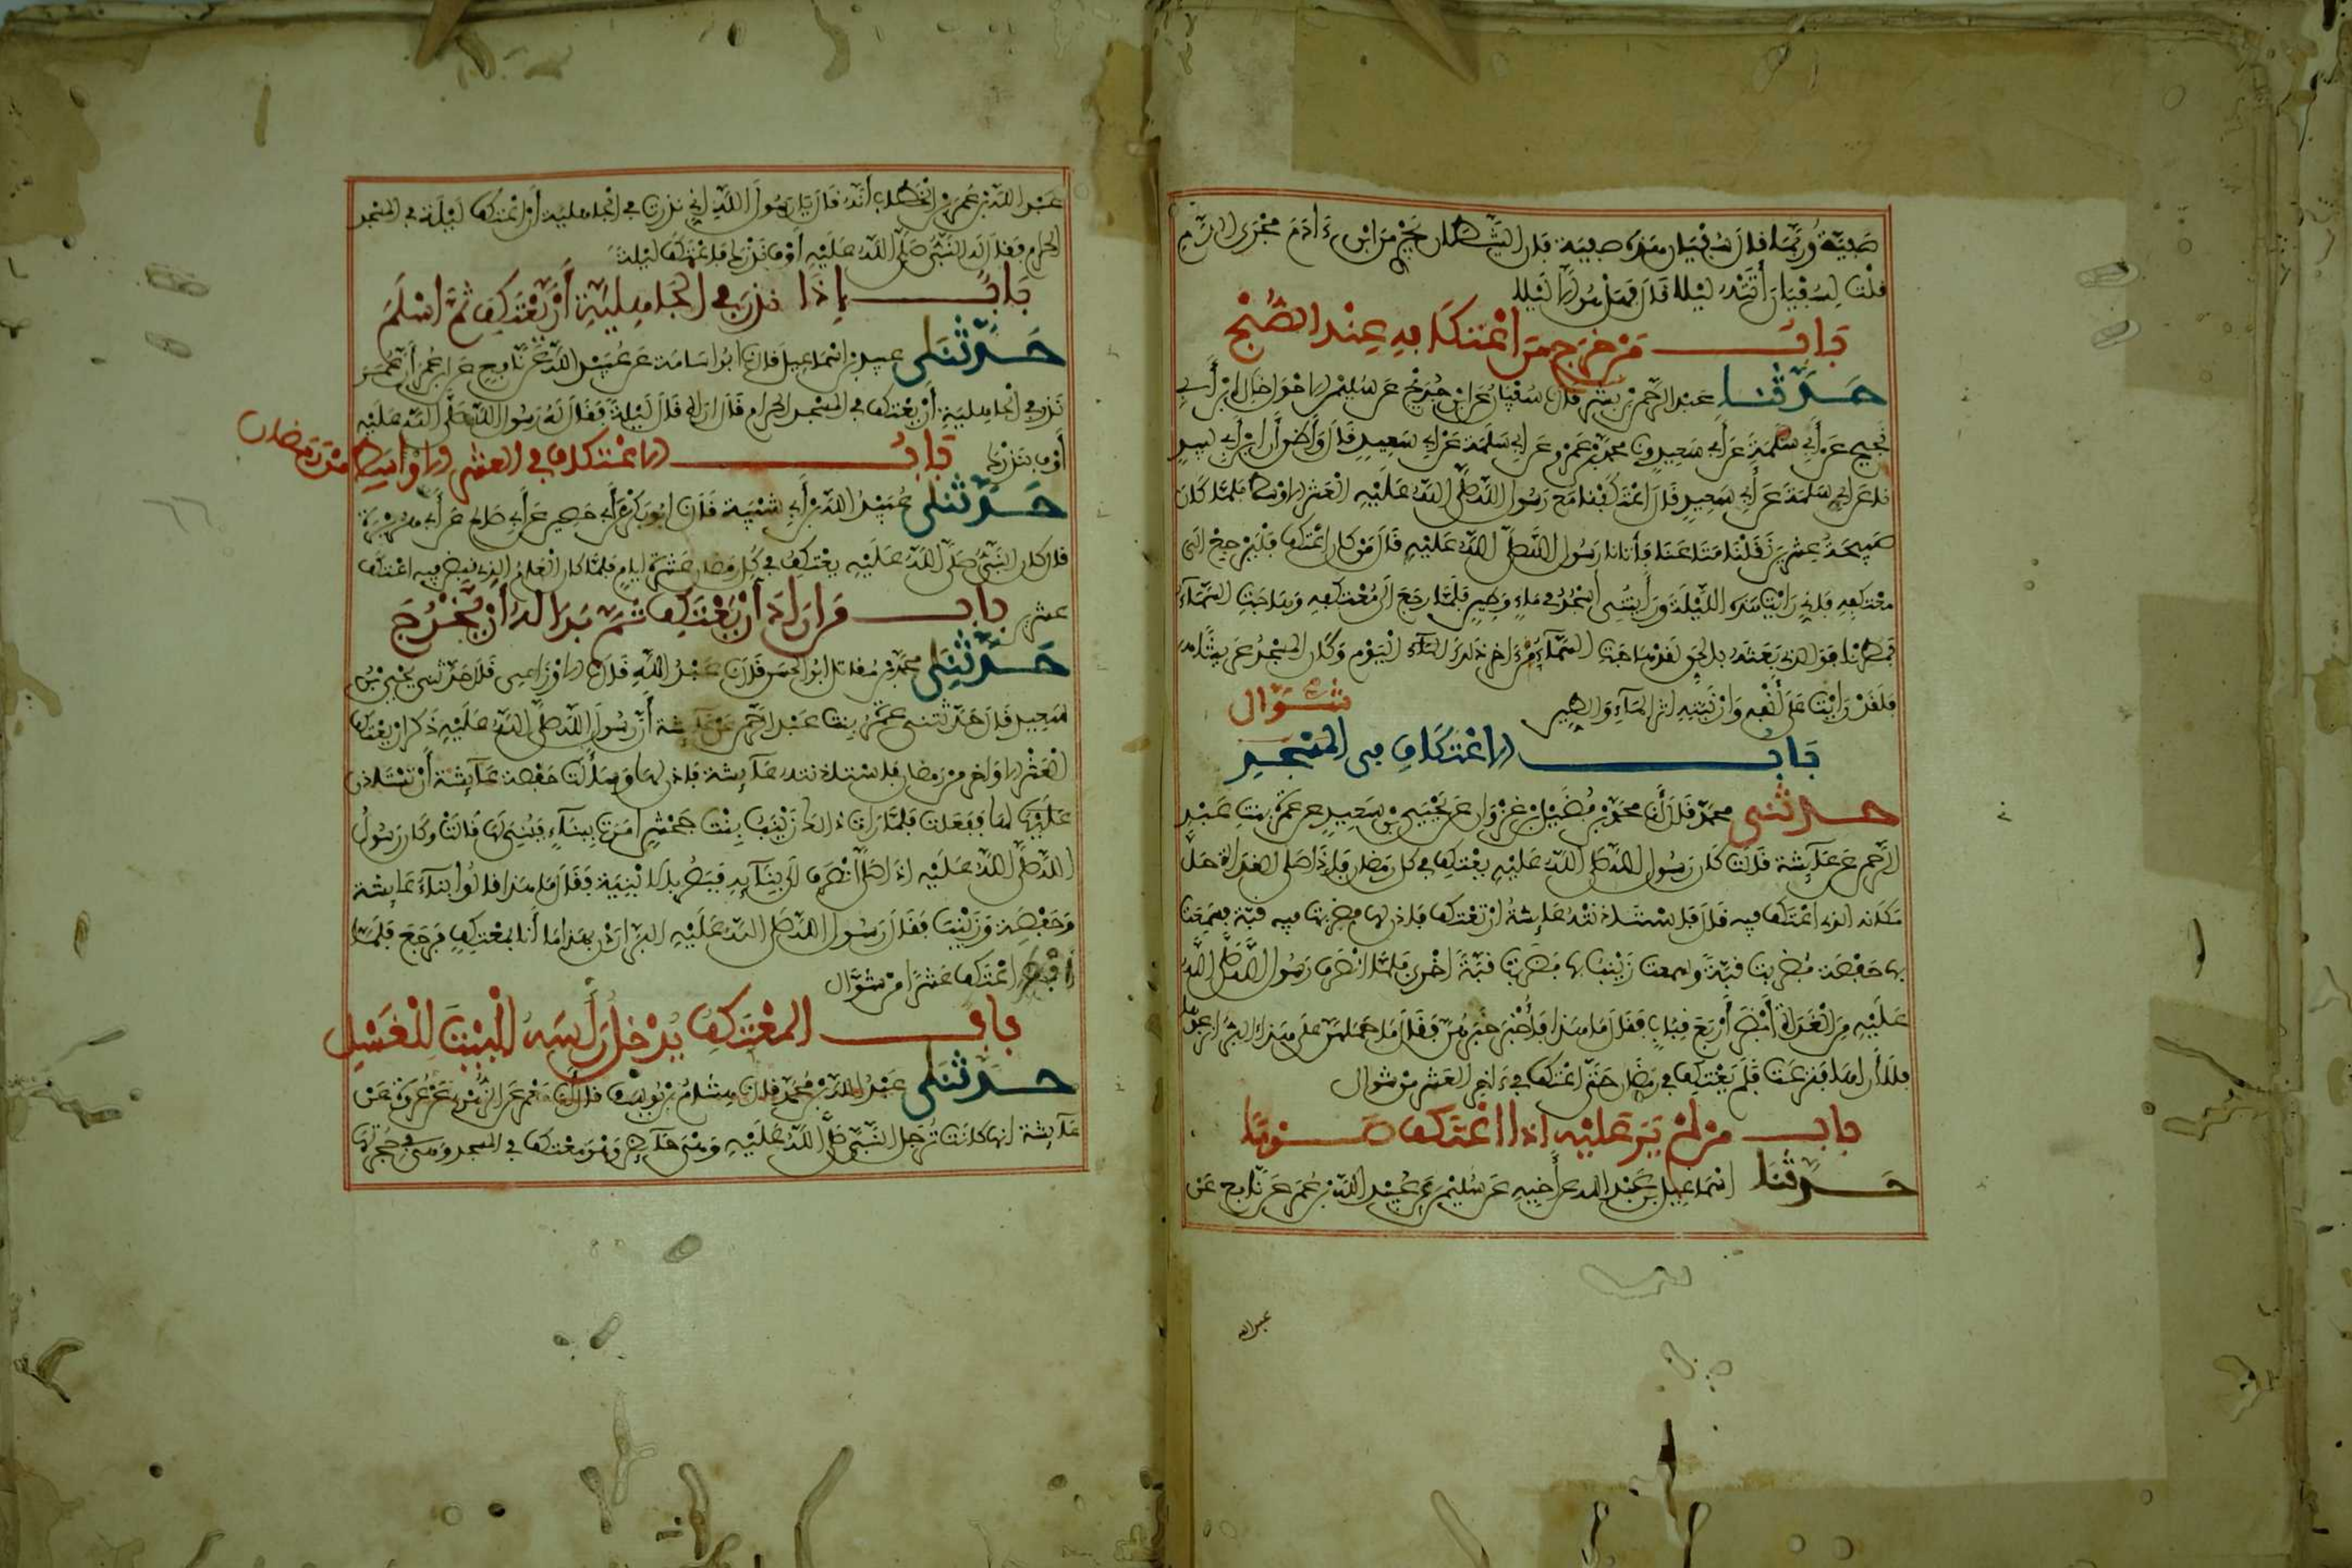 صفية وربما قال سفيان هذه صفية قال الشيطان يجري من ابن ءادم مجرى الدم
قلت لسفيان أتته ليلا قال فهل هو الا ليلا
باب من خرج من اعتكافه عند الصبح
حدثنا عبد الرحمن بن بشر قال سفيان عن ابن جريج عن سليمن الاحول خال ابن أبي
نجيح عن أبي سلمة عن أبي سعيد ونا محمد بن عمرو عن ابي سلمة عن ابي سعيد قال وأظن أن ابن أبي لبيد
نا عن ابي سلمة عن أبي سعيد قال اعتكفنا مع رسول الله صلى الله عليه العشر الاوسط فلما كان
صبيحة عشرين نقلنا متاعنا فأتانا رسول الله صلى الله عليه قال من كان اعتكف فليرجع الى
معتكفه فإني رايت هذه الليلة ورأيتني اسجد في ماء وطين فلما رجع الى معتكفه وهاجت السماء
فمطرنا فوالذي بعثه بالحق لقد هاجت السماء من ءاخر ذلك اليوم وكان المسجد عريشا
فلقد رايت على أنفه وأرنبته اثر الماء والطين
شوال
باب الاعتكاف في المسجد
حدثني محمد قال أنا محمد بن فضيل بن غزوان عن يحيى بن سعيد عن عمرة بنت عبد
الرحمن عن عائشة قالت كان رسول الله صلى الله عليه يعتكف في كل رمضان فإذا صلى الغداة حل
مكانه الذي اعتكف فيه قال فاستاذنته عائشة ان تعتكف فاذن لها فضربت فيه قبة فسمعت
بها حفصة فضربت قبة وسمعت زينب بها فضربت قبة اخرى فلما انصرف رسول الله صلى الله
عليه من الغداة أبصر أربع قباب فقال ما هذا فأخبر خبرهن فقال ما حملهن على هذا البر انزعوها
فلا أراها فنزعت فلم يعتكف في رمضان حتى اعتكف في ءاخر العشر من شوال
باب من لم ير عليه اذا اعتكف صوما
حدثنا اسماعيل بن عبد الله عن أخيه عن سليمن عن عبيد الله بن عمر عن نافع عن
عبد الله
عبد الله بن عمر عن عمر بن الخطاب أنه قال يا رسول الله اني نذرت في الجاهلية أن اعتكف ليلة في المسجد
الحرام فقال له النبي صلى الله عليه أوف نذرك فاعتكف ليلة
باب إذا نذر في الجاهلية أن يعتكف ثم اسلم
حدثنا عبيد بن اسماعيل قال نا ابو اسامة عن عبيد الله عن نافع عن ابن عمر أن عمر
نذر في الجاهلية أن يعتكف في المسجد الحرام قال اراه قال ليلة فقال له رسول الله صلى الله عليه
أوف بنذرك باب الاعتكاف في العشر الاواسط من رمضان
حدثنا عبد الله بن أبي شيبة قال نا ابو بكر عن أبي حصين عن أبي صالح عن أبي هريرة
قال كان النبي صلى الله عليه يعتكف في كل رمضان عشرة ايام فلما كان العام الذي قبض فيه اعتكف
عشرين باب من اراد أن يعتكف ثم بدا له أن يخرج
حدثني محمد بن مقاتل ابو الحسن قال نا عبد الله قال نا الاوزاعي قال حدثني يحيى بن
سعيد قال حدثتني عمرة بنت عبد الرحمن عن عائشة أن رسول الله صلى الله عليه ذكر ان يعتكف
العشر الاواخر من رمضان فاستاذنته عائشة فاذن لها وسألت حفصة عائشة أن تستاذن
عليها لها ففعلت فلما رات ذلك زينب بنت جحش امرت ببناء فبني لها قالت وكان رسول
الله صلى الله عليه اذا صلى انصرف الى بنائه فبصر بالابنية فقال ما هذا قالوا بناء عايشة
وحفصة وزينب فقال رسول الله صلى الله عليه البر اردن بهذا ما أنا بمعتكف فرجع فلما
أفطر اعتكف عشرا من شوال
باب المعتكف يدخل رأسه البيت للغسل
حدثنا عبد الله بن محمد قال نا هشام بن يوسف قال أنا معمر عن الزهري عن عروة عن
عائشة انها كانت ترجل النبي صلى الله عليه وهي حائض وهو معتكف في المسجد وهي في حجرتها